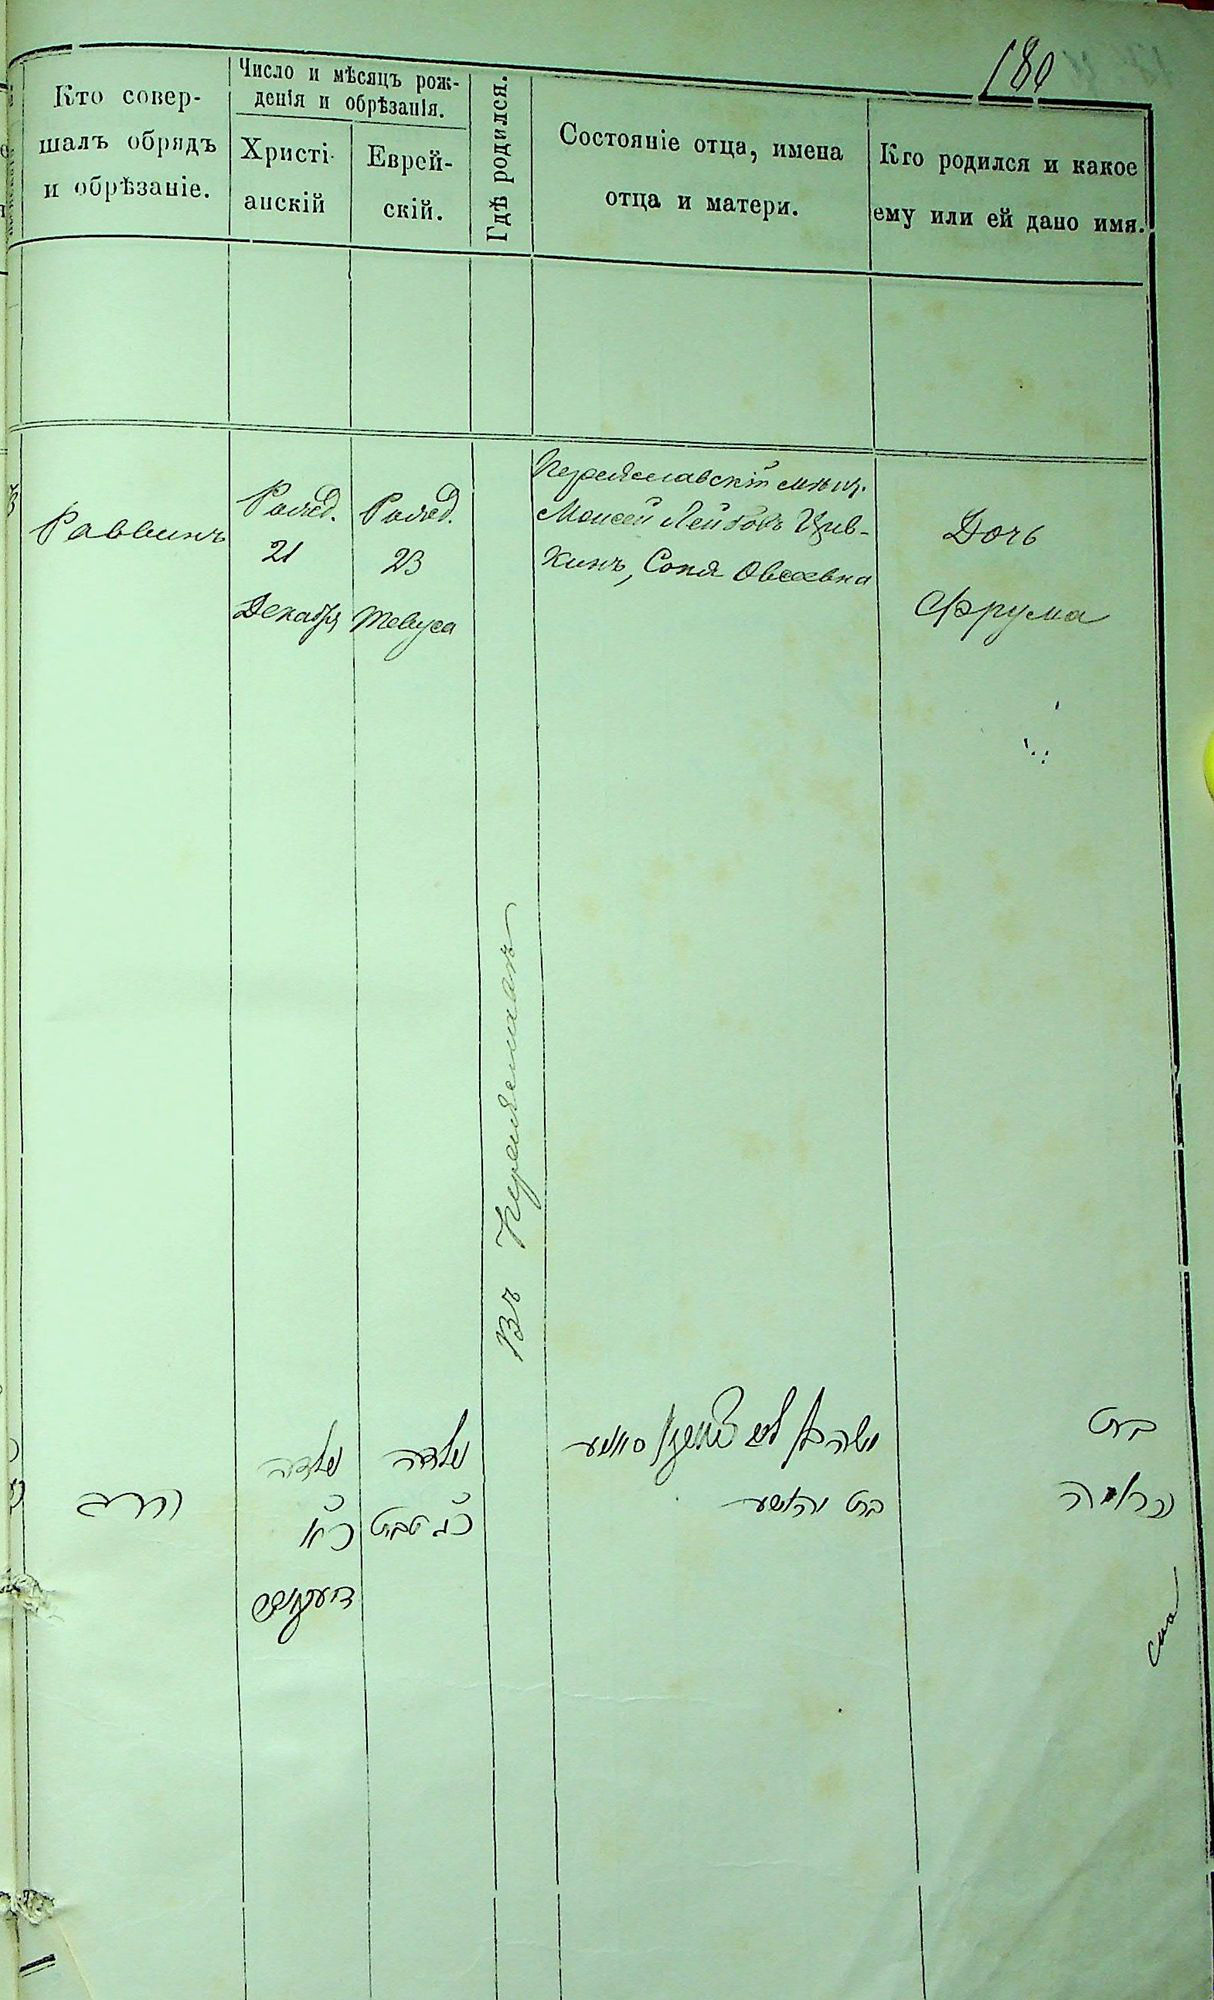 180
Кто совер-
шалъ обрядъ
и обрѣзаніе.
Число и мѣсяцъ рож-
денія и обрѣзанія.
Христі-
анскій
Еврей-
скій.
Гдѣ родился.
Состояніе отца, имена
отца и матери.
Кто родился и какое
ему или ей дано имя.
Раввинъ
Рожд.
21
Декабря
Рожд.
23
Тевуса
Въ Переяславлѣ
Переяславскій мѣщ.
Моисей Лейбовъ Цив-
кинъ, Соня Овсеевна
Дочь
Фрума
הרב
נולדה
כ״א
דעקאבר
נולדה
כ״ג טבת
בת יהושע
בת
פרומה